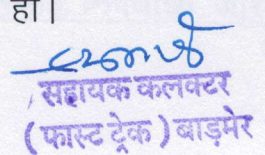 हो।
सहायक कलक्टर
(फास्ट ट्रेक) बाड़मेर